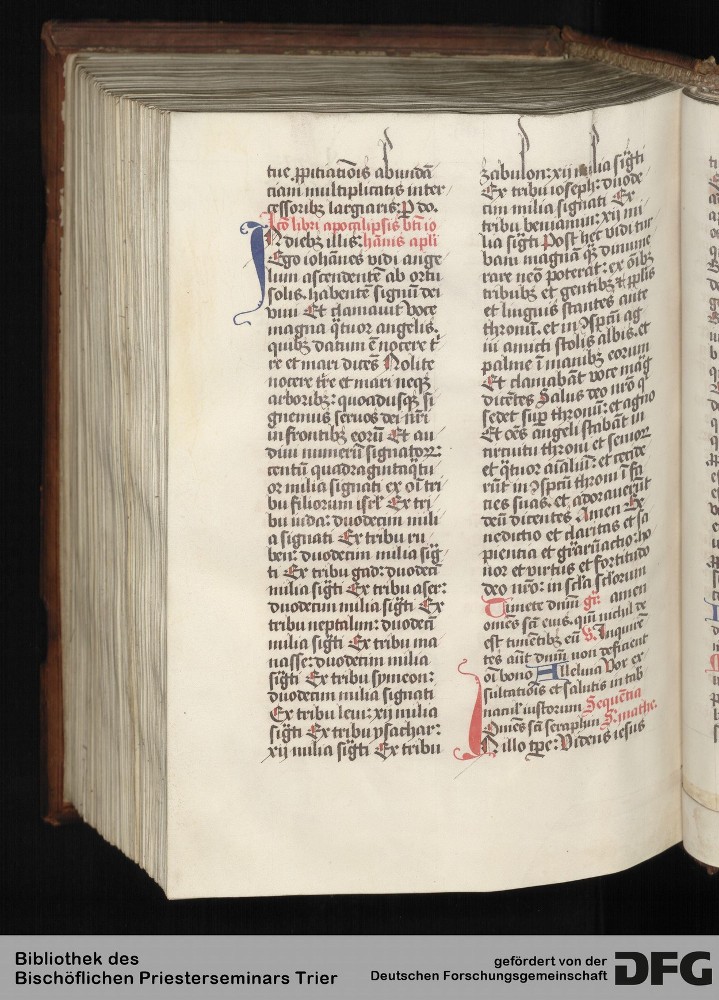 tue ꝓpitiatiōis abundā
ciam multiplicatis inter
cessoribꝫ largiaris: P do.
Lc̄o libri apocalipsis bt̄i io
In diebꝫ illis: hānis apl̄i
Ego iohānes vidi ange
lum ascendentē ab ortu
solis. habentē signū dei
viui Et clamauit voce
magna q̄tuor angelis.
quibꝫ datum ē nocere t̄r
re et mari dicēs Nolite
nocere t̄re et mari neqꝫ
arboribꝫ: quoadusqꝫ si
gnemus seruos dei nr̄i
in frontibꝫ eorū Et au
diui numerū signatorꝝ:
centū quadragintaq̄tu
or milia signati ex oī tri
bu filiorum isrl̄ Ex tri
bu iuda: duodecim mili
a signati Ex tribu ru
ben: duodecim milia siḡ
ti Ex tribu gad: duodeci
milia siḡti Ex tribu aser:
duodecim milia siḡti Ex
tribu neptalim: duodeci
milia siḡti Ex tribu ma
nasse: duodecim milia
siḡti Ex tribu symeon:
duodecim milia signati
Ex tribu leui: xij milia
siḡti Ex tribu ysachar:
xij milia siḡti Ex tribu
zabulon: xij milia siḡti
Ex tribu ioseph: duode
cim milia signati Ex
tribu beniamin: xij mi
lia siḡti Post hec vidi tur
bam magnā q̄ dinume
rare neō poterat: ex oībꝫ
tribubꝫ et gentibꝫ ⁊ ppl̄is
et linguis stantes ante
thronū. et in ↄspc̄tu ag
ni amicti stolis albis. et
palme ī manibꝫ eorum
Et clamabāt voce maḡ
dicētes Salus deo nr̄o q̄
sedet suꝑ thronū: et agno
Et oēs angeli stabāt in
circuitu throni et seniorꝝ
et q̄tuor aīaliū: et cecide
rūt in ↄspc̄tu throni ī fa
cies suas. et adorauerūt
deū dicentes Amen Be
nedictio et claritas et sa
pientia et gr̄aꝝactio: ho
nor et virtus et fortitudo
deo nr̄o: in scl̄a scl̄orum
Timete dnm̄ gr̄. amen
omēs sc̄i eius. qm̄ nichil de
est timētibꝫ eū V. Inquirē
tes aūt dnm̄ non deficient
oī bono Alleluia Vox ex
sultationis et salutis in tab
nacul̓ iustorum Sequētia
Omēs sc̄i seraphin S. mathe.
In illo tp̄e: Videns iesus
Bibliothek des
Bischöflichen Priesterseminars Trier
gefördert von der
Deutschen Forschungsgemeinschaft
DFG